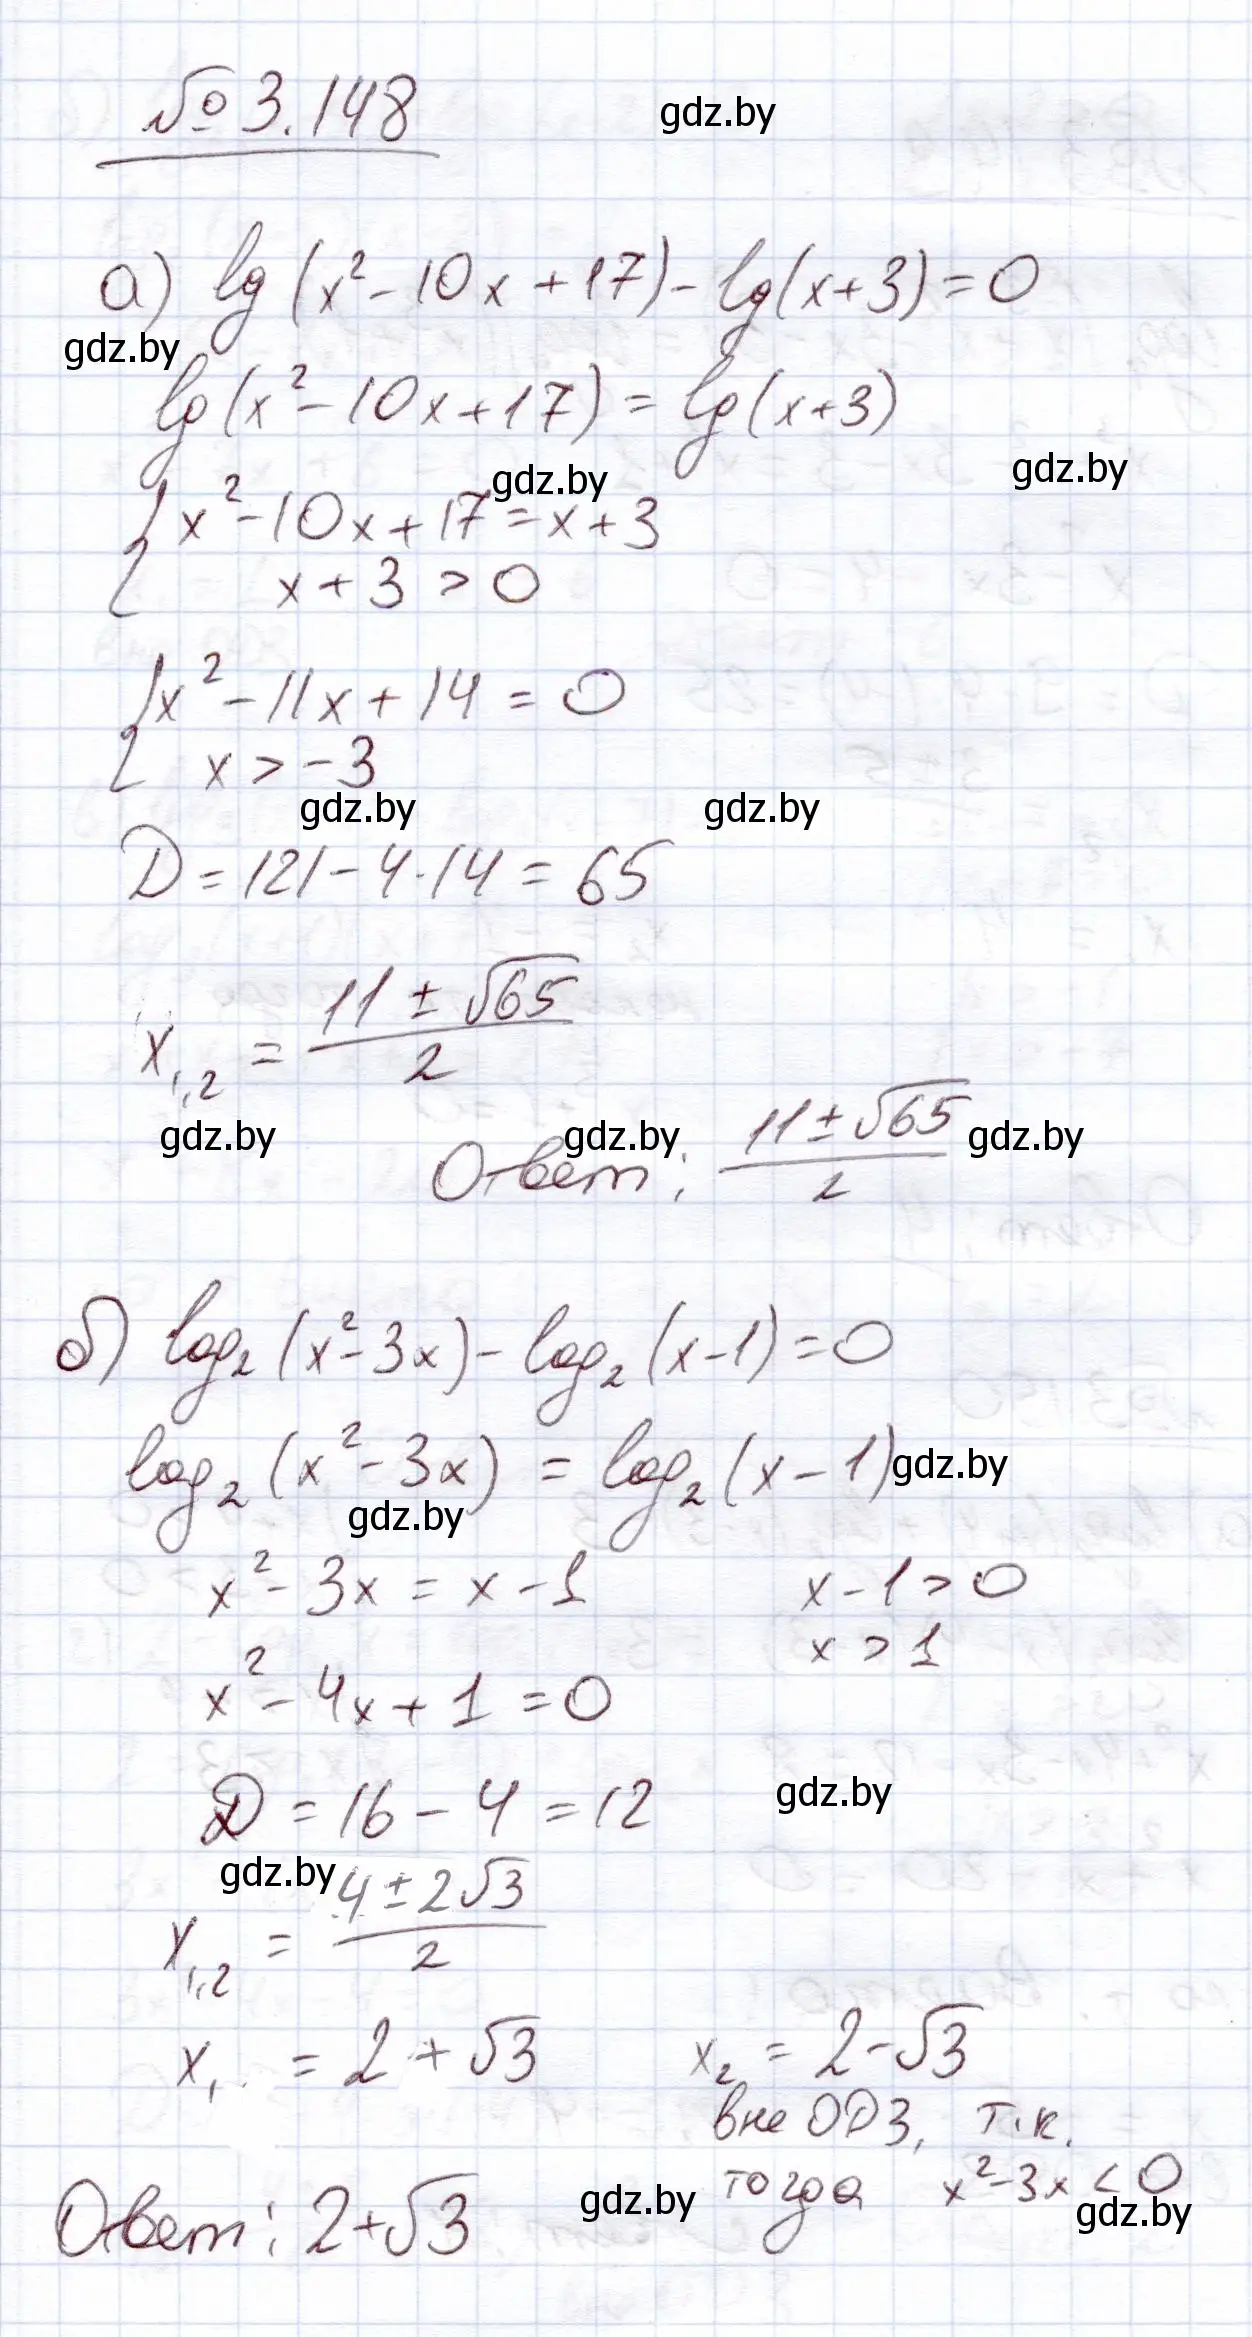 № 3.148
gdz.by
а) lg(x² - 10x + 17) - lg(x+3) = 0
gdz.by
lg(x² - 10x + 17) = lg(x+3)
gdz.by
gdz.by
{ x² - 10x + 17 = x + 3
x + 3 > 0
{ x² - 11x + 14 = 0
x > -3
gdz.by gdz.by
D = 121 - 4·14 = 65
x₁,₂ = (11 ± √65)/2
gdz.by gdz.by gdz.by
Ответ: (11 ± √65)/2
б) log₂(x² - 3x) - log₂(x-1) = 0
log₂(x² - 3x) = log₂(x - 1)
gdz.by
gdz.by
x² - 3x = x - 1 x - 1 > 0
x > 1
x² - 4x + 1 = 0
D = 16 - 4 = 12
gdz.by
gdz.by
x₁,₂ = (4 ± 2√3)/2
x₁ = 2 + √3 x₂ = 2 - √3
вне ОДЗ, т.к.
тогда x² - 3x < 0
gdz.by
gdz.by
Ответ: 2+√3